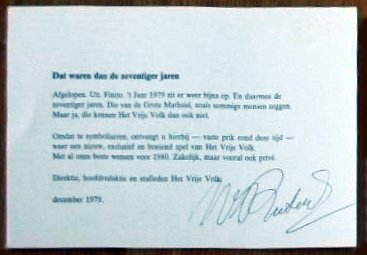 Dat waren dan de zeventiger jaren
Afgelopen. Uit. Finito. 't Jaar 1979 zit er weer bijna op. En daarmee de
zeventiger jaren. Die van de Grote Matheid, zoals sommige mensen zeggen.
Maar ja, die kennen Het Vrije Volk dan ook niet.
Omdat te symboliseren, ontvangt u hierbij — vaste prik rond deze tijd —
weer een nieuw, exclusief en boeiend spel van Het Vrije Volk.
Met al onze beste wensen voor 1980. Zakelijk, maar vooral ook privé.
Direktie, hoofdredaktie en stafleden Het Vrije Volk.
december 1979.